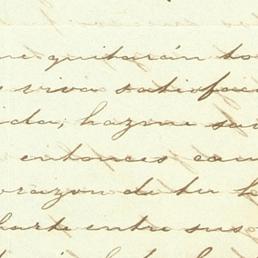 me quitarán to
viva satisfac
ida, hazme sa
entonces cam
orazon de tu h
harte entre sus